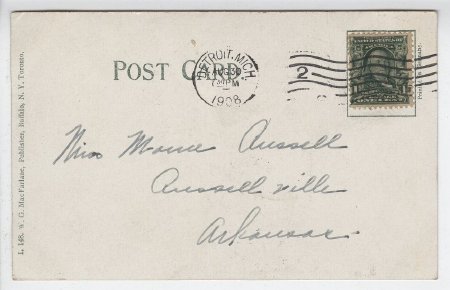 POST CARD
DETROIT, MICH.
AUG 30
PM
1908
2
Miss Mame Russell
Russellville
Arkansas.
L. 148. W. G. MacFarlane, Publisher, Buffalo, N. Y. Toronto.